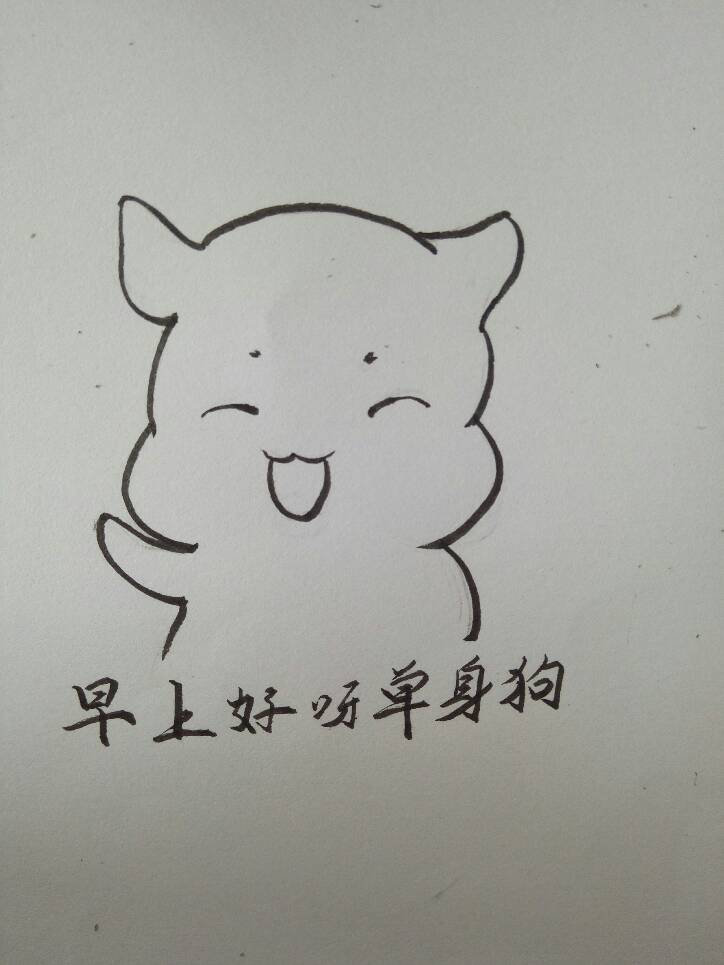 早上好呀单身狗